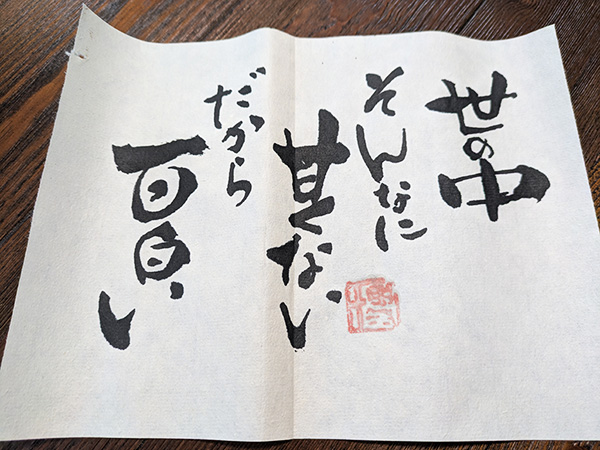 世の中
そんなに
甘くない
だから
面白い